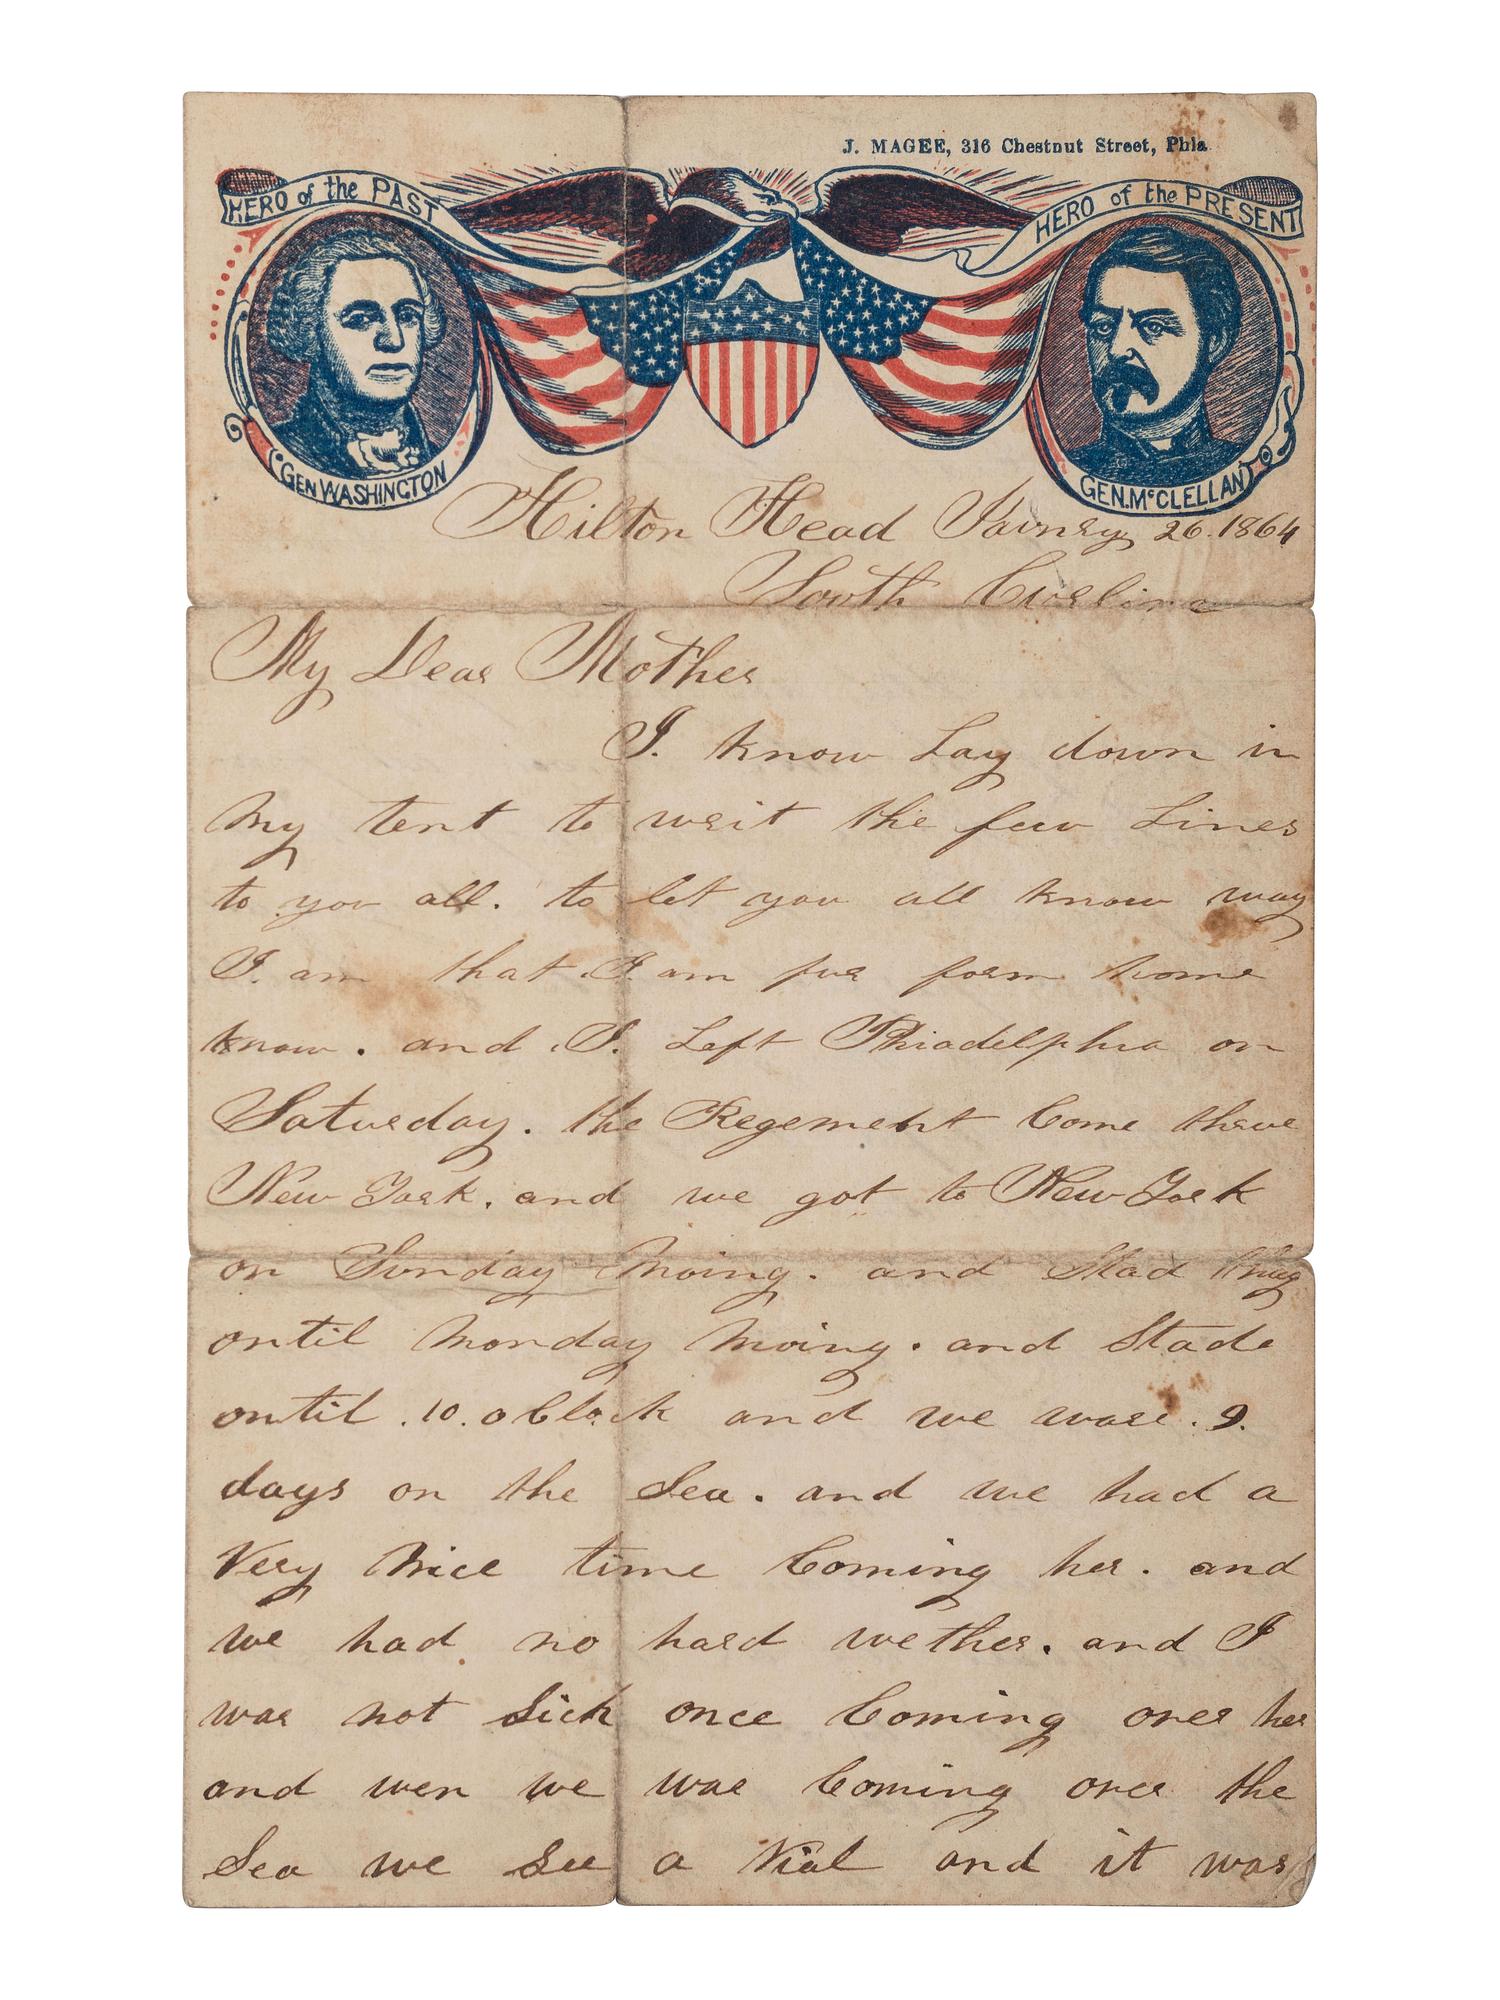 J. MAGEE, 316 Chestnut Street, Phla
HERO of the PAST
HERO of the PRESENT
GEN WASHINGTON
GEN. McCLELLAN
Hilton Head Jaunry 26. 1864
South Curlina
My Dear Mother
I. know Lay down in
my tent to writ the few Lines
to you all. to let you all know way
I. am that. I. am fur form home
know. and. I. Left Phiadelphia on
Saturday. the Regement Come thrue
New York. and we got to New York
on Sunday moing. and Stad
ontil monday moing. and Stade
ontil .10. o Clock and we ware .9.
days on the Sea. and we had a
Very Nice time Coming her. and
we had no hard wether. and I
was not Sick once Coming over her
and wen we was Coming over the
Sea we See a and it was